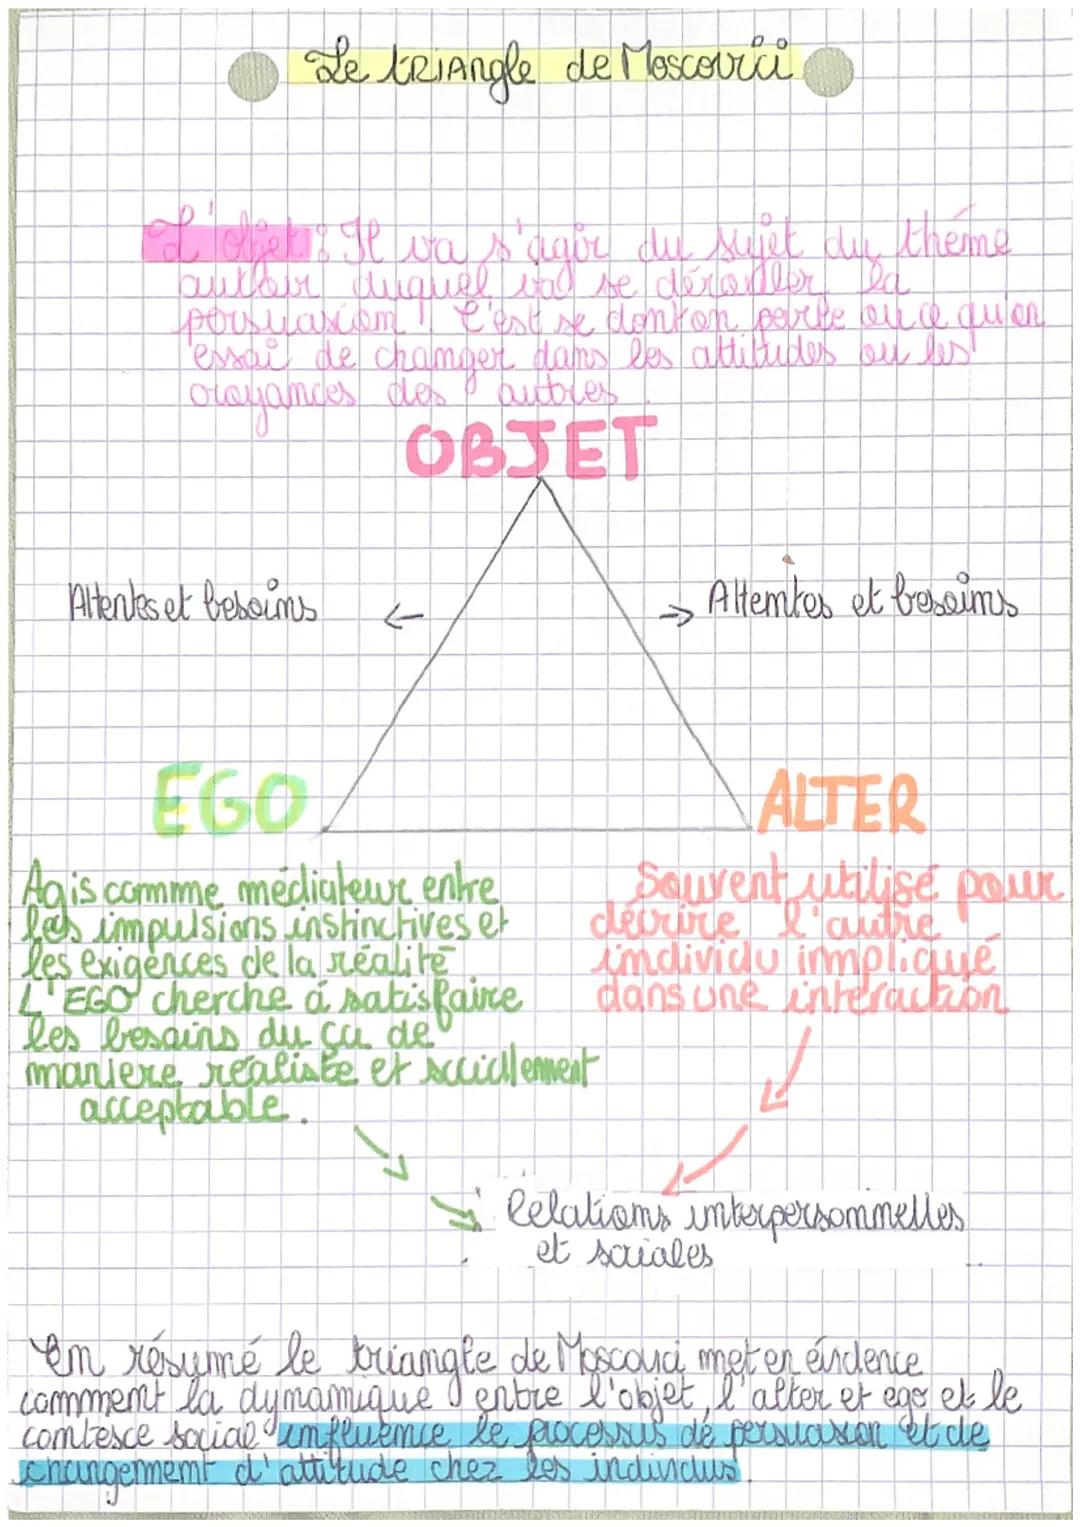 Le tRiANgle de Moscovici
L'objet : Il va s'agir du sujet du thème
autour duquel va se dérouler la
porsuasion ! C'est se dont on parle ou ce qu'on
essai de changer dans les attitudes ou les
croyances des autres.
OBJET
Attentes et besoins ←
→ Attentes et besoins
EGO
ALTER
Agis comme médiateur entre
les impulsions instinctives et
les exigences de la réalité
L'EGO cherche à satisfaire
les besoins du ça de
maniere réaliste et sociallement
acceptable.
Souvent utilisé pour
décrire l'autre
individu impliqué
dans une interaction
Relations interpersonnelles
et sociales
En résumé le triangle de Moscovici met en évidence
comment la dynamique entre l'objet, l'alter et ego et le
contesce social influence le processus de persuasion et de
changement d'attitude chez les individus.